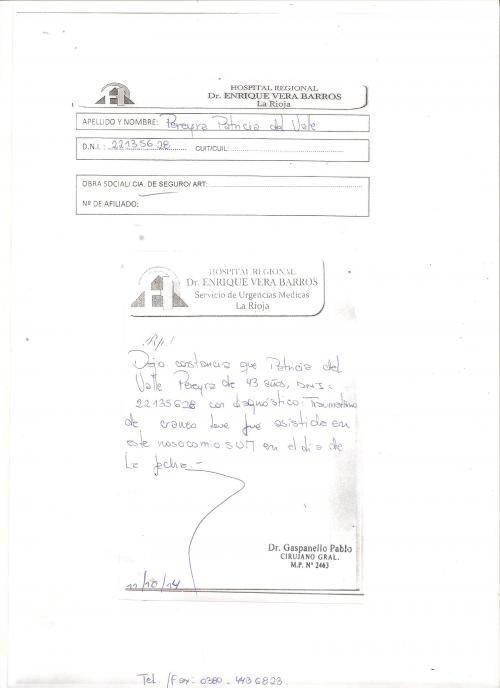 HOSPITAL REGIONAL
Dr. ENRIQUE VERA BARROS
La Rioja
APELLIDO Y NOMBRE: Pereyra Patricia del Valle
D.N.I.: 22135628 CUIT/CUIL:
OBRA SOCIAL/ CIA. DE SEGURO/ ART:
Nº DE AFILIADO:
HOSPITAL REGIONAL
Dr. ENRIQUE VERA BARROS
Servicio de Urgencias Medicas
La Rioja
Rp/
Dejo constancia que Patricia del
Valle Pereyra de 43 años, DNI:
22135628 con diagnóstico: Traumatismo
de craneo leve fue asistido en
este nosocomio SUM en el día de
la fecha.-
Dr. Gaspanello Pablo
CIRUJANO GRAL.
M.P. Nº 2463
11/10/14
Tel. /Fax: 0380 - 4436823